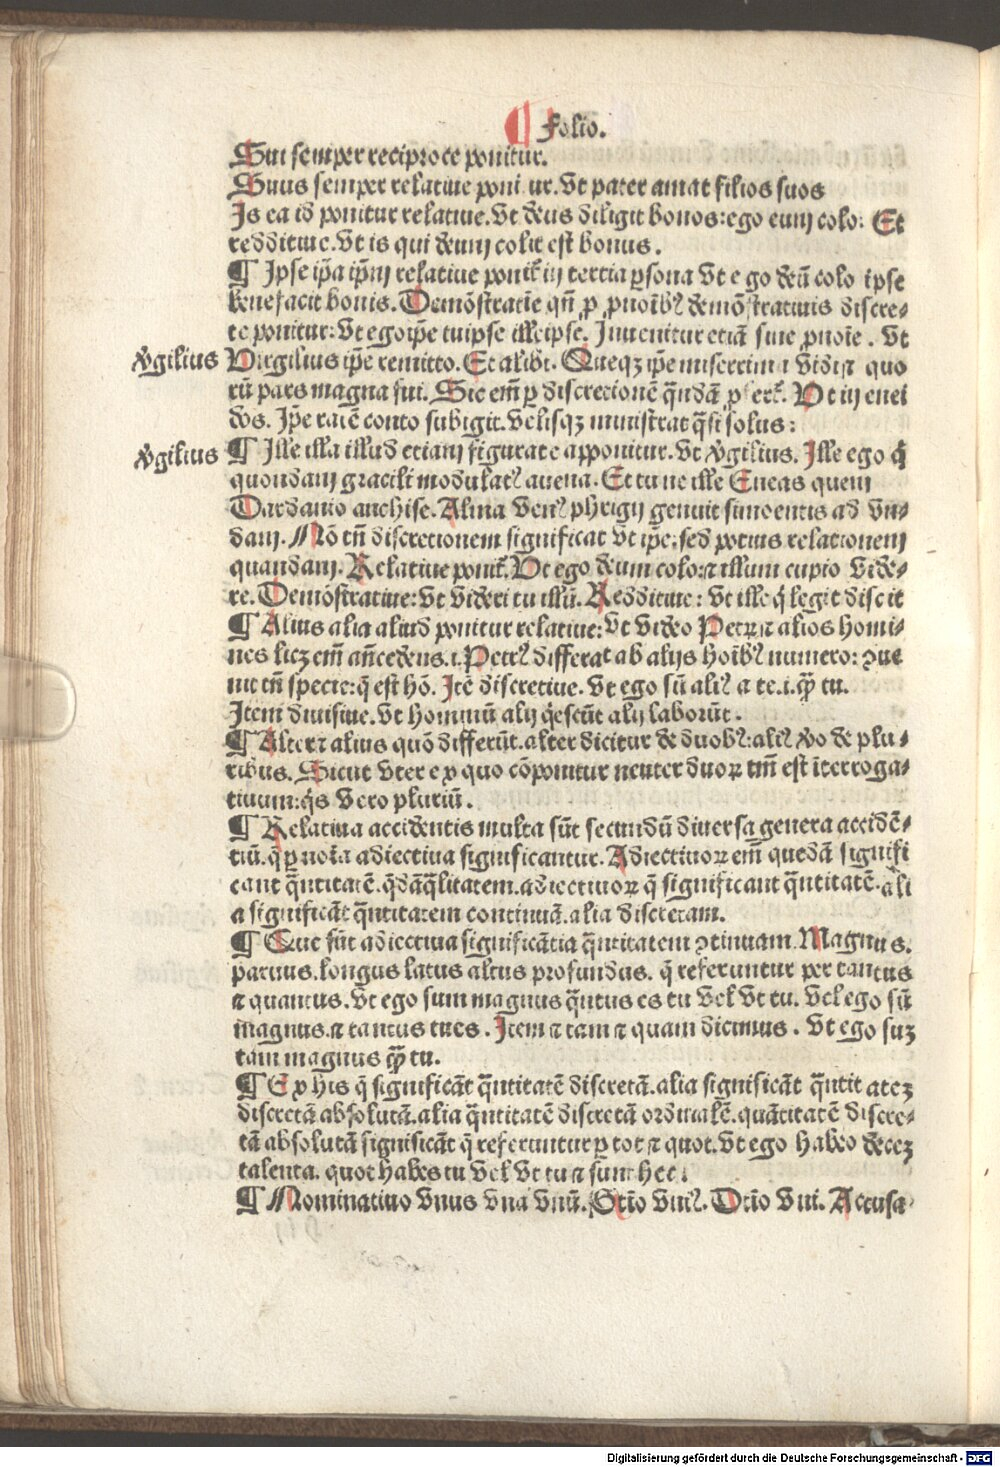 ¶ Folio.
Sui semper reciproce ponitur.
Suus semper relatiue poni ur. Vt pater amat filios suos
Is ea id ponitur relatiue. Vt deus diligit bonos: ego eum colo: Et
redditiue. Vt is qui deum colit est bonus.
¶ Ipse ip̄a ip̄m relatiue ponit̄ in tertia ꝑsona Vt e go deū colo ipse
benefacit bonis. Demōstratiē qn̄ ꝑ ꝓnoīb⁹ demōstratiuis discre-
te ponitur: Vt egoip̄e tuipse illeipse. Inuenitur etiā sine ꝓnoīe. Vt
v̄gilius
Virgilius ip̄e remitto. Et alibi. Queqꝫ ip̄e miserrima vidi ⁊ quo
rū pars magna fui. Sic em̄ ꝑ discretionē quādā ꝓfert̄. Vt in enei
dos. Ip̄e ratē conto subigit. Velisqꝫ ministrat q̄si solus:
v̄gilius
¶ Ille illa illud etiam figurate apponitur. Vt v̄gilius. Ille ego q̄
quondam gracili modulat⁹ auena. Et tu ne ille Eneas quem
Dardanio anchise. Alma Ven⁹ phrigij genuit simoentis ad vn-
dam. Nō tn̄ discretionem significat vt ip̄e: sed potius relationem
quandam. Relatiue ponit̄. Vt ego deum colo: ⁊ illum cupio vide-
re. Demōstratiue: Vt videri tu illū. Redditiue: Vt ille q̄ legit disc it
¶ Alius alia aliud ponitur relatiue: Vt video Petrꝝ ⁊ alios homi-
nes licꝫ em̄ an̄cedens .i. Petr⁹ differat ab alijs hoīb⁹ numero: ꝯue
nit tn̄ specie: q̄ est hō. Itē discretiue. Vt ego sū ali⁹ a te .i. q̄ꝫ tu.
Item diuisiue. Vt hominū alij q̄escūt alij laborūt.
¶ Alter ⁊ alius quō differūt. alter dicitur de duob⁹: ali⁹ v̄o de plu-
ribus. Sicut vter ex quo cōponitur neuter duoꝝ tm̄ est īterroga-
tiuum: q̄s vero pluriū.
¶ Relatiua accidentis multa sūt secundū diuersa genera accidē-
tiū. q̄ ꝑ noīa adiectiua significantur. Adiectiuoꝝ em̄ quedā signifi
cant q̄ntitatē. q̄dā q̄litatem. adiectiuoꝝ q̄ significant q̄ntitatē. ali
a significāt q̄ntitatem continuā. alia discretam.
¶ Que sūt adiectiua significātia q̄ntitatem ꝯtinuam. Magnus.
paruus. longus latus altus profundus. q̄ referuntur per tantus
⁊ quantus. Vt ego sum magnus q̄ntus es tu vel vt tu. Vel ego sū
magnus. ⁊ tantus tues. Item ⁊ tam ⁊ quam dicimus. Vt ego suꝫ
tam magnus q̄ꝫ tu.
¶ Ex his q̄ significāt q̄ntitatē discretā. alia significāt q̄ntit ateꝫ
discretā absolutā. alia q̄ntitatē discretā ordinalē. quātitatē discre-
tā absolutā significāt q̄ referuntur ꝑ tot ⁊ quot. Vt ego habeo deceꝫ
talenta. quot habes tu vel vt tu ⁊ sunt hec:
¶ Nominatiuo vnus vna vnū. Gtīo vni⁹. Dtīo vni. Accusa-
Digitalisierung gefördert durch die Deutsche Forschungsgemeinschaft - DFG